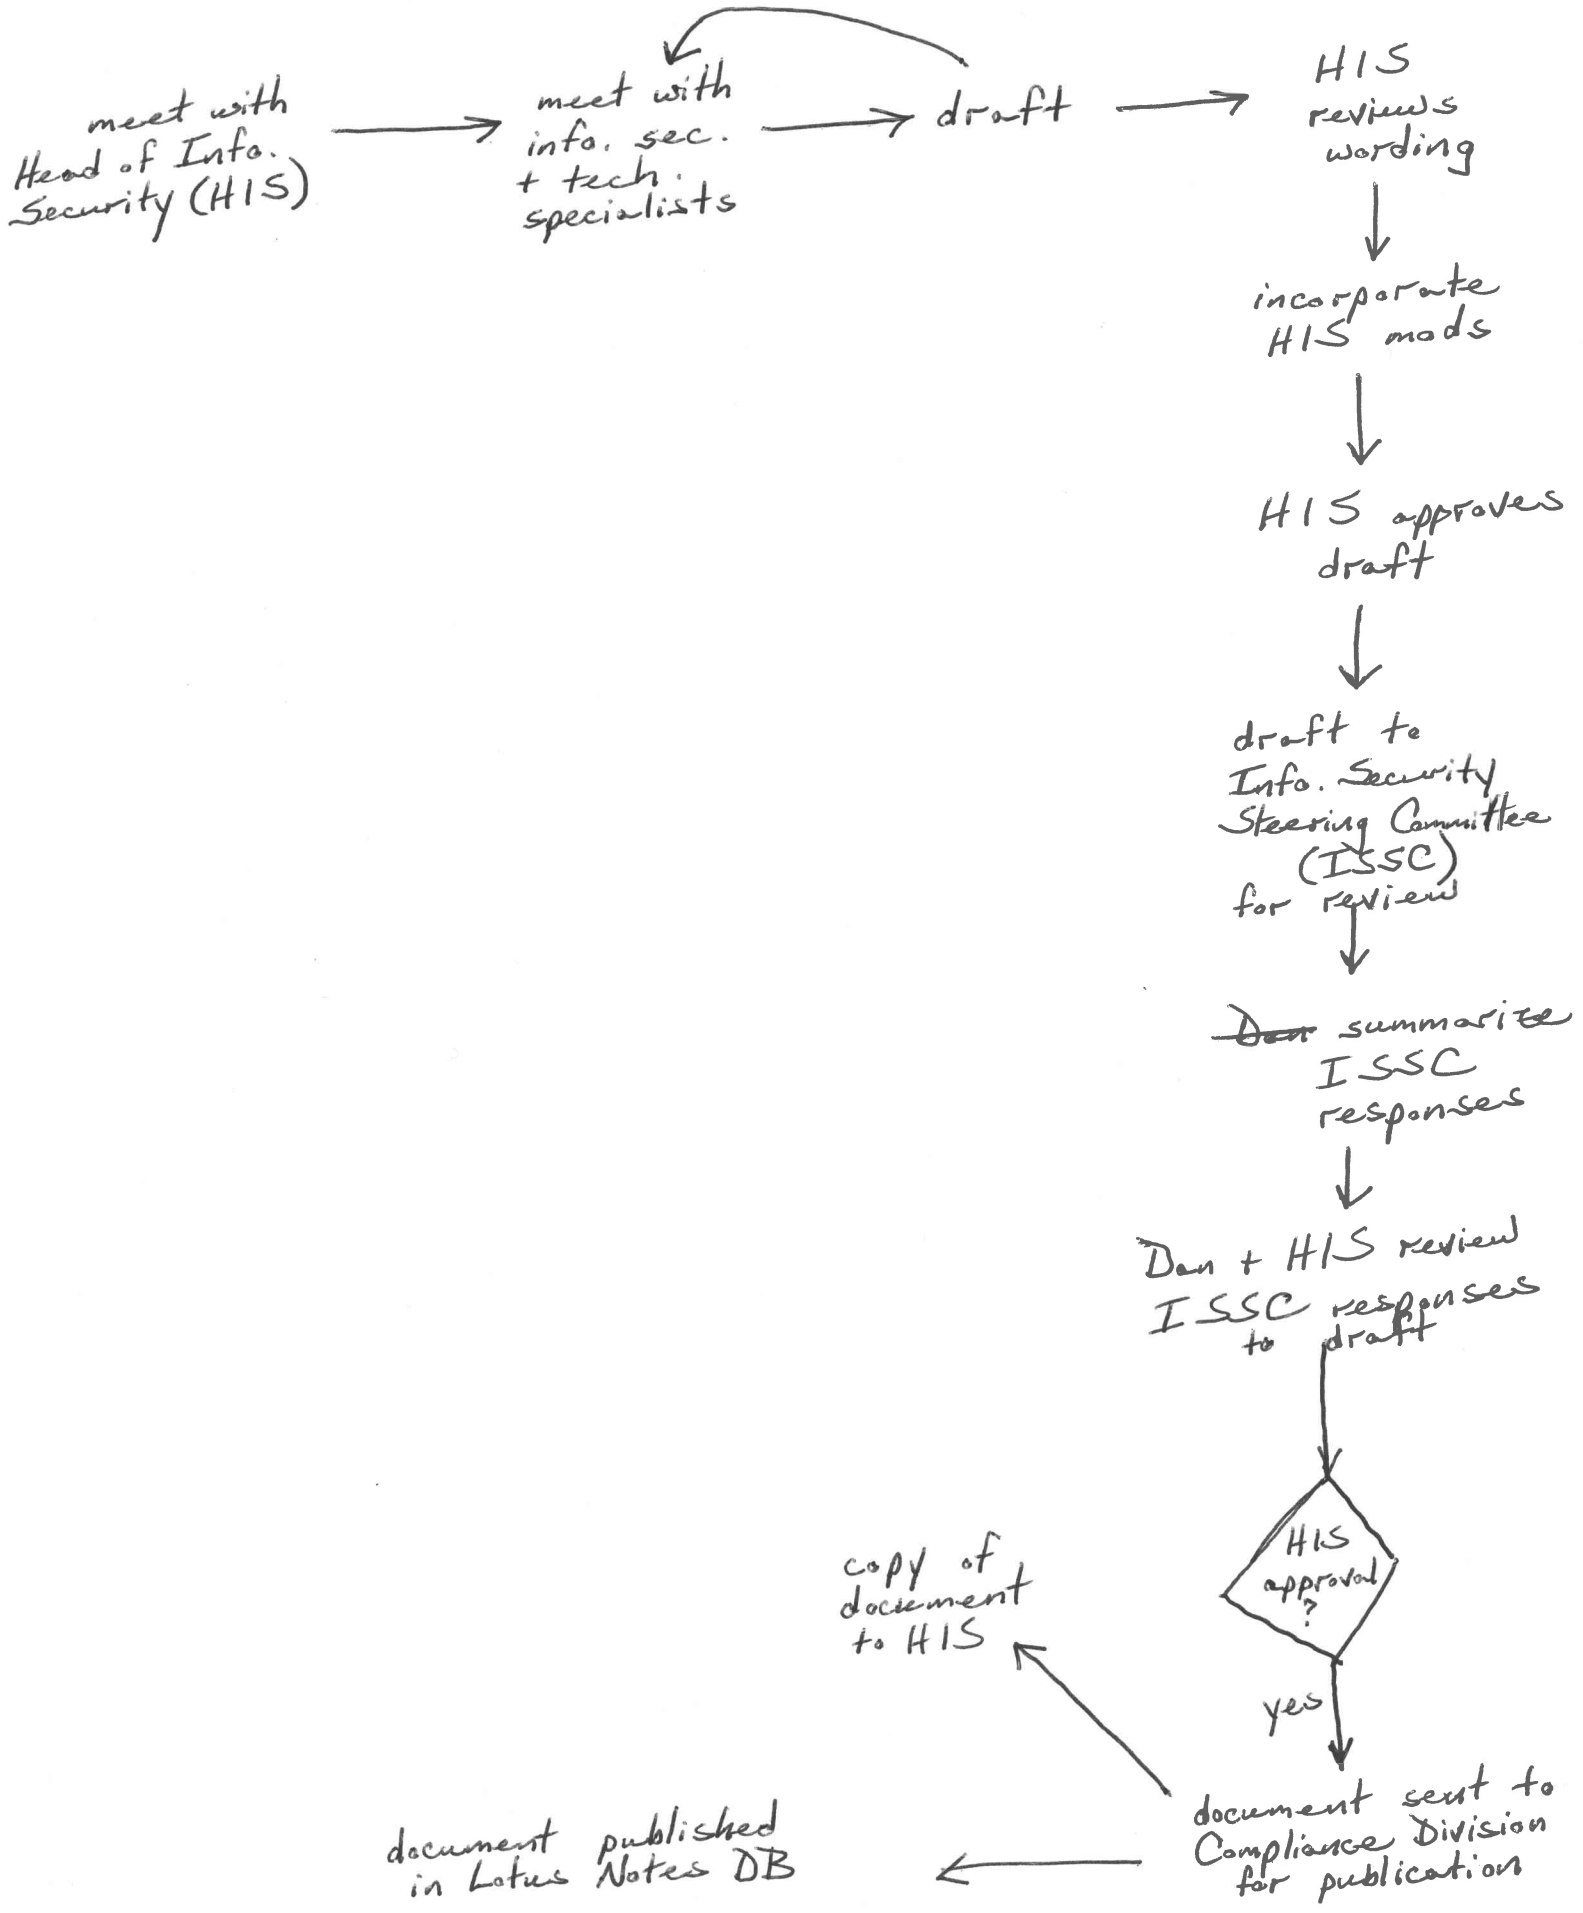 meet with
Head of Info.
Security (HIS)
meet with
info. sec.
+ tech.
specialists
draft
HIS
reviews
wording
incorporate
HIS mods
HIS approves
draft
draft to
Info. Security
Steering Committee
(ISSC)
for review
Dan summarize
ISSC
responses
Dan + HIS review
ISSC responses
to draft
HIS
approval
?
yes
copy of
document
to HIS
document sent to
Compliance Division
for publication
document published
in Lotus Notes DB